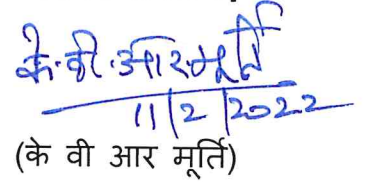 के.वी.आर.मूर्ति
11/2/2022
(के वी आर मूर्ति)